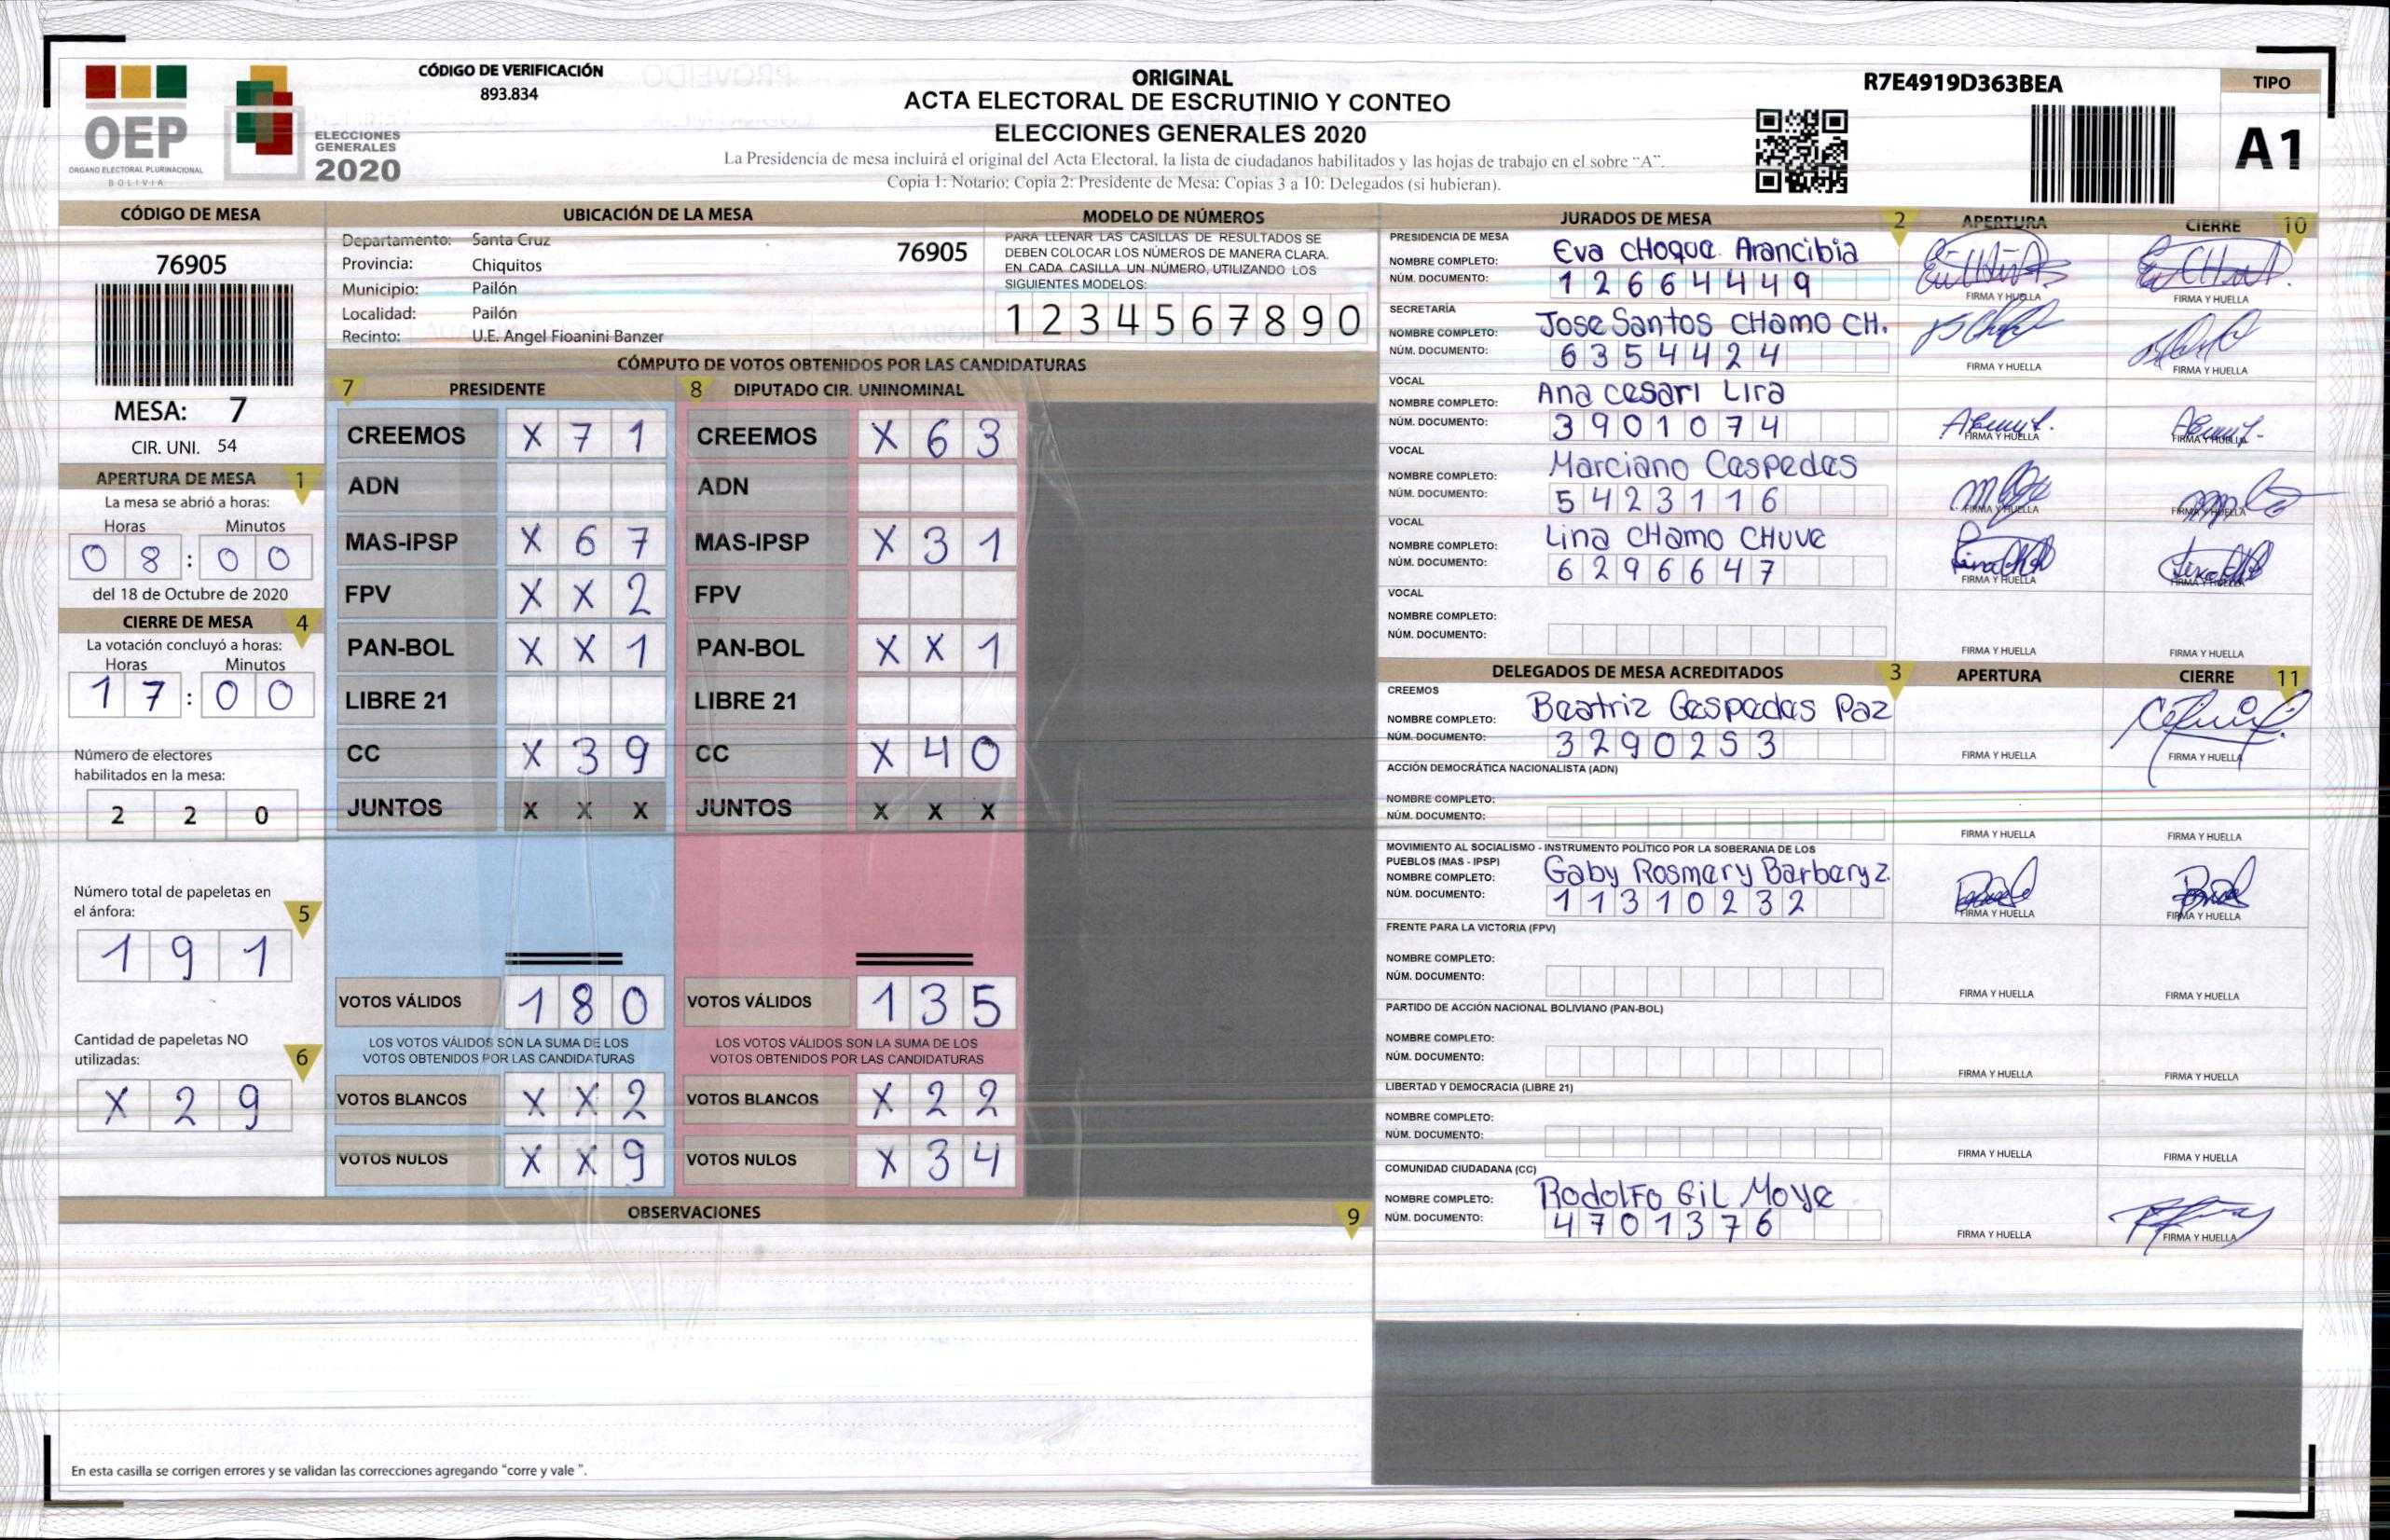 OEP
ÓRGANO ELECTORAL PLURINACIONAL
BOLIVIA
ELECCIONES
GENERALES
2020
CÓDIGO DE VERIFICACIÓN
893.834
ORIGINAL
ACTA ELECTORAL DE ESCRUTINIO Y CONTEO
ELECCIONES GENERALES 2020
La Presidencia de mesa incluirá el original del Acta Electoral, la lista de ciudadanos habilitados y las hojas de trabajo en el sobre "A".
Copia 1: Notario; Copia 2: Presidente de Mesa; Copias 3 a 10: Delegados (si hubieran).
R7E4919D363BEA
TIPO
A1
CÓDIGO DE MESA
76905
MESA: 7
CIR. UNI. 54
APERTURA DE MESA 1
La mesa se abrió a horas:
Horas Minutos
08:00
del 18 de Octubre de 2020
CIERRE DE MESA 4
La votación concluyó a horas:
Horas Minutos
17:00
Número de electores
habilitados en la mesa:
220
Número total de papeletas en
el ánfora: 5
191
Cantidad de papeletas NO
utilizadas: 6
X29
UBICACIÓN DE LA MESA
Departamento: Santa Cruz
76905
Provincia: Chiquitos
Municipio: Pailón
Localidad: Pailón
Recinto: U.E. Angel Fioanini Banzer
MODELO DE NÚMEROS
PARA LLENAR LAS CASILLAS DE RESULTADOS SE
DEBEN COLOCAR LOS NÚMEROS DE MANERA CLARA.
EN CADA CASILLA UN NÚMERO, UTILIZANDO LOS
SIGUIENTES MODELOS:
1234567890
CÓMPUTO DE VOTOS OBTENIDOS POR LAS CANDIDATURAS
7 PRESIDENTE 8 DIPUTADO CIR. UNINOMINAL
CREEMOS X71 CREEMOS X63
ADN ADN
MAS-IPSP X67 MAS-IPSP X31
FPV XX2 FPV
PAN-BOL XX1 PAN-BOL XX1
LIBRE 21 LIBRE 21
CC X39 CC X40
JUNTOS X X X JUNTOS X X X
VOTOS VÁLIDOS 180 VOTOS VÁLIDOS 135
LOS VOTOS VÁLIDOS SON LA SUMA DE LOS LOS VOTOS VÁLIDOS SON LA SUMA DE LOS
VOTOS OBTENIDOS POR LAS CANDIDATURAS VOTOS OBTENIDOS POR LAS CANDIDATURAS
VOTOS BLANCOS XX2 VOTOS BLANCOS X22
VOTOS NULOS XX9 VOTOS NULOS X34
OBSERVACIONES 9
En esta casilla se corrigen errores y se validan las correcciones agregando "corre y vale ".
JURADOS DE MESA 2 APERTURA CIERRE 10
PRESIDENCIA DE MESA
NOMBRE COMPLETO: Eva CHoque Arancibia
NÚM. DOCUMENTO: 12664449
FIRMA Y HUELLA FIRMA Y HUELLA
SECRETARÍA
NOMBRE COMPLETO: Jose Santos CHamo CH.
NÚM. DOCUMENTO: 6354424
FIRMA Y HUELLA FIRMA Y HUELLA
VOCAL
NOMBRE COMPLETO: Ana cesari Lira
NÚM. DOCUMENTO: 3901074
FIRMA Y HUELLA FIRMA Y HUELLA
VOCAL
NOMBRE COMPLETO: Marciano Cespedes
NÚM. DOCUMENTO: 5423116
FIRMA Y HUELLA FIRMA Y HUELLA
VOCAL
NOMBRE COMPLETO: Lina CHamo CHuve
NÚM. DOCUMENTO: 6296647
FIRMA Y HUELLA FIRMA Y HUELLA
VOCAL
NOMBRE COMPLETO:
NÚM. DOCUMENTO:
FIRMA Y HUELLA FIRMA Y HUELLA
DELEGADOS DE MESA ACREDITADOS 3 APERTURA CIERRE 11
CREEMOS
NOMBRE COMPLETO: Beatriz Cespedes Paz
NÚM. DOCUMENTO: 3290253
FIRMA Y HUELLA FIRMA Y HUELLA
ACCIÓN DEMOCRÁTICA NACIONALISTA (ADN)
NOMBRE COMPLETO:
NÚM. DOCUMENTO:
FIRMA Y HUELLA FIRMA Y HUELLA
MOVIMIENTO AL SOCIALISMO - INSTRUMENTO POLÍTICO POR LA SOBERANIA DE LOS
PUEBLOS (MAS - IPSP)
NOMBRE COMPLETO: Gaby Rosmery Barbery Z.
NÚM. DOCUMENTO: 11310232
FIRMA Y HUELLA FIRMA Y HUELLA
FRENTE PARA LA VICTORIA (FPV)
NOMBRE COMPLETO:
NÚM. DOCUMENTO:
FIRMA Y HUELLA FIRMA Y HUELLA
PARTIDO DE ACCIÓN NACIONAL BOLIVIANO (PAN-BOL)
NOMBRE COMPLETO:
NÚM. DOCUMENTO:
FIRMA Y HUELLA FIRMA Y HUELLA
LIBERTAD Y DEMOCRACIA (LIBRE 21)
NOMBRE COMPLETO:
NÚM. DOCUMENTO:
FIRMA Y HUELLA FIRMA Y HUELLA
COMUNIDAD CIUDADANA (CC)
NOMBRE COMPLETO: RodolFo Gil Moye
NÚM. DOCUMENTO: 4701376
FIRMA Y HUELLA FIRMA Y HUELLA